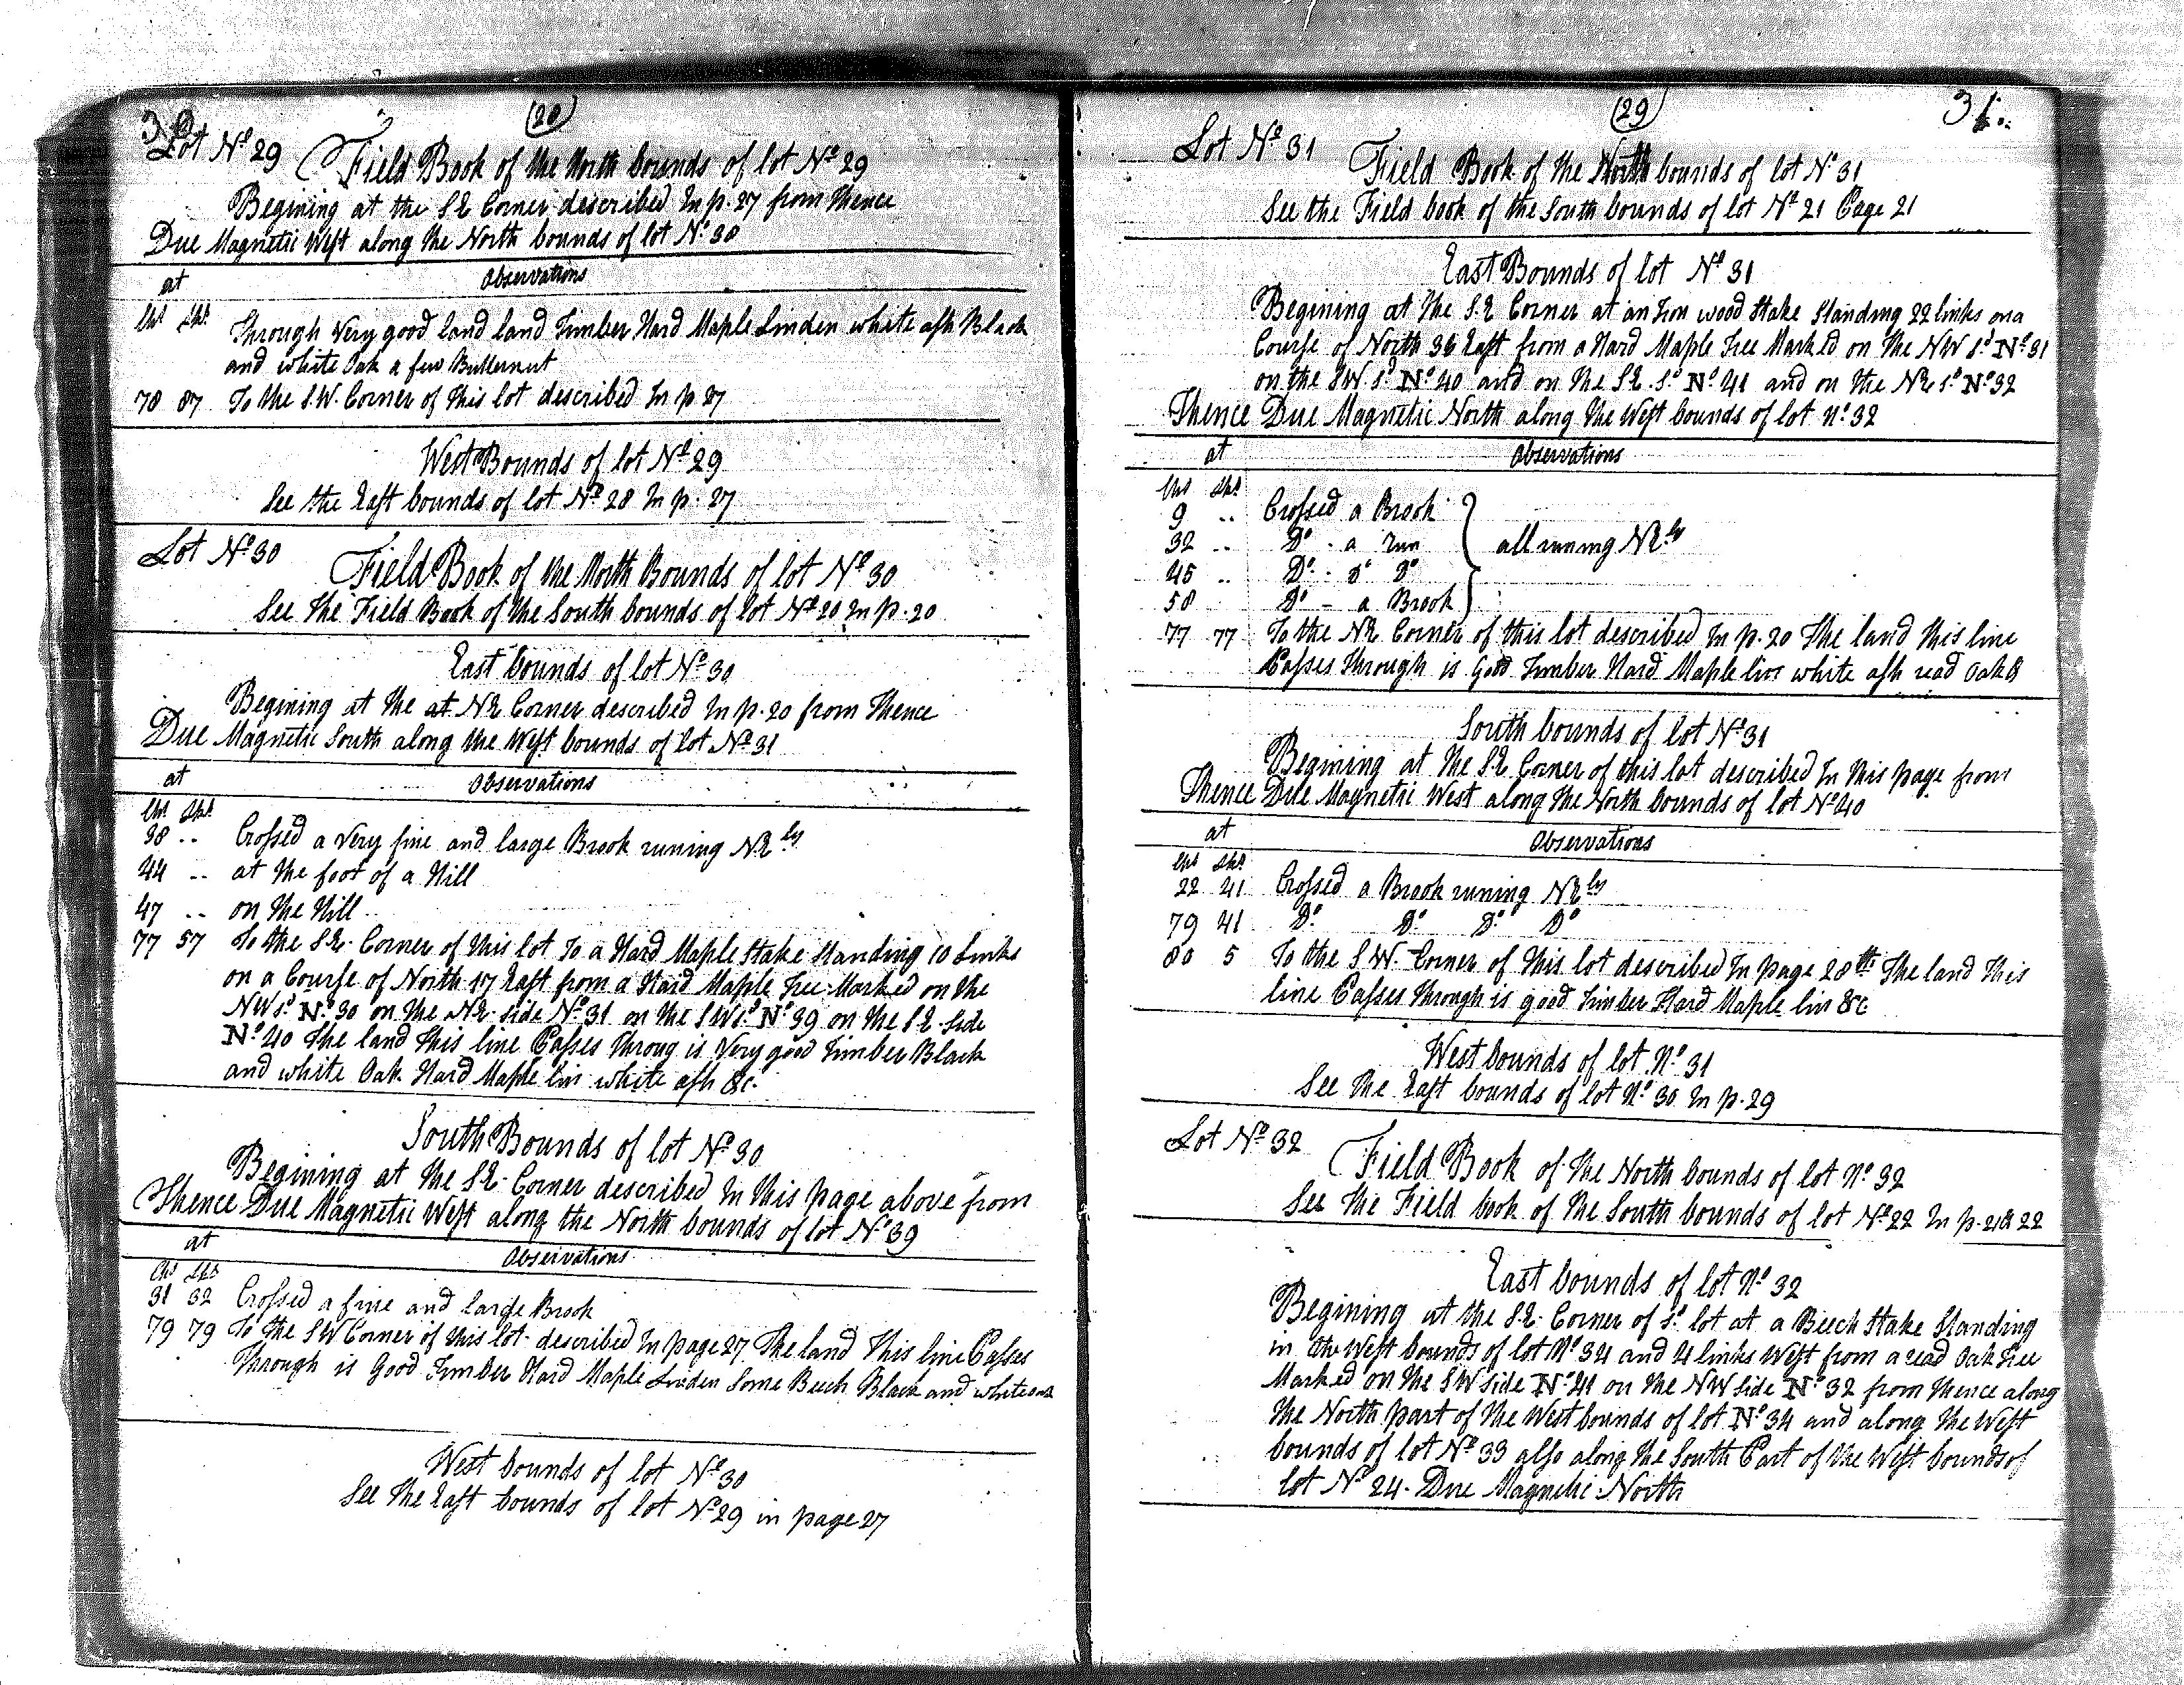 30
(28)
Lot No 29 Field Book of the North bounds of lot No 29
Begining at the S E Corner described In p. 27 from Thence
Due Magnetic West along the North bounds of lot No 30
at Observations
Chs Lks Through Very good land land Timber Hard Maple Linden white ash Black
and white Oak a few Butternut
78 87 To the S.W. Corner of this lot described In p 27
West Bounds of lot No 29
See the East bounds of lot No 28 In p. 27
Lot No 30 Field Book of the North Bounds of lot No 30
See the Field Book of the South bounds of lot No 20 In p. 20
East bounds of lot No 30
Begining at the at NE Corner described In p. 20 from Thence
Due Magnetic South along the West bounds of lot No 31
at Observations
Chs Lks
38 .. Crossed a Very fine and large Brook runing NEly
44 .. at the foot of a Hill
47 .. on the Hill
77 57 To the S.E. Corner of this lot To a Hard Maple Stake Standing 10 Links
on a Course of North 17 East from a Hard Maple Tree Marked on the
NW s.d No 30 on the NE side No 31 on the SW s.d No 39 on the S E Side
No 40 The land this line Passes throug is Very good Timber Black
and white Oak Hard Maple lin white ash &c.
South Bounds of lot No 30
Begining at the S E. Corner described In this page above from
Thence Due Magnetic West along the North bounds of lot No 39
at Observations
Chs Lks
31 32 Crossed a fine and large Brook
79 79 To the SW Corner of this lot described In page 27 The land This line Passes
Through is Good Timber Hard Maple Linden Some Beech Black and white oak
West bounds of lot No 30
See the East bounds of lot No 29 in page 27
(29)
31.
Lot No 31 Field Book of the North bounds of lot No 31
See the Field book of the South bounds of lot No 21 Page 21
East Bounds of lot No 31
Begining at the S.E Corner at an Iron wood Stake Standing 22 links on a
Course of North 36 East from a Hard Maple Tree Marked on the NW s.d No 31
on the SW s.d No 40 and on the S E. s.d No 41 and on the NE s.d No 32
Thence Due Magnetic North along the West bounds of lot No 32
at Observations
Chs Lks
9 .. Crossed a Brook
32 .. Do . a run all runing NEly
45 .. Do . Do Do
58 Do - a Brook
77 77 To the NE Corner of this lot described In p. 20 The land this line
Passes through is Good Timber Hard Maple lin white ash read Oak &
South bounds of lot No 31
Begining at the S E Corner of this lot described In this page from
Thence Due Magnetic West along the North bounds of lot No 40
at Observations
Chs Lks
22 41 Crossed a Brook runing NEly
79 41 Do Do Do Do
80 5 To the S W. Corner of this lot described In page 28th The land This
line Passes through is good Timber Hard Maple lin &c
West bounds of lot No 31
See the East bounds of lot No 30 In p. 29
Lot No 32 Field Book of the North bounds of lot No 32
See the Field book of the South bounds of lot No 22 In p. 21 & 22
East bounds of lot No 32
Begining at the S.E. Corner of s.d lot at a Beech Stake Standing
in the West bounds of lot No 34 and 4 links West from a read Oak Tree
Marked on the SW side No 41 on the NW side No 32 from thence along
the North part of the West bounds of lot No 34 and along the West
bounds of lot No 33 also along the South Part of the West bounds of
lot No 24. Due Magnetic North